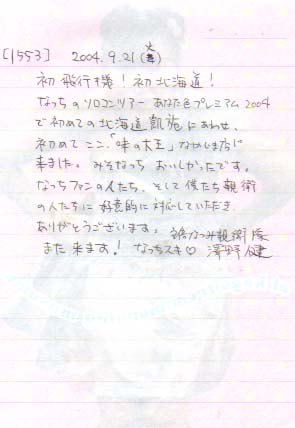 [1553] 2004.9.21(火)
初飛行機!初北海道!
なっちのソロコンツアーあなた色プレミアム2004
で初めての北海道凱旋にあわせ、
初めてここ「味の大王」
来ました。みそなっちおいしかったです。
なっちファンの人たち、そして僕たち親衛
の人たちに好意的に対応していただき
ありがとうございます。 安倍なつみ親衛隊
また来ます!なっちスキ♡ 澤野 健